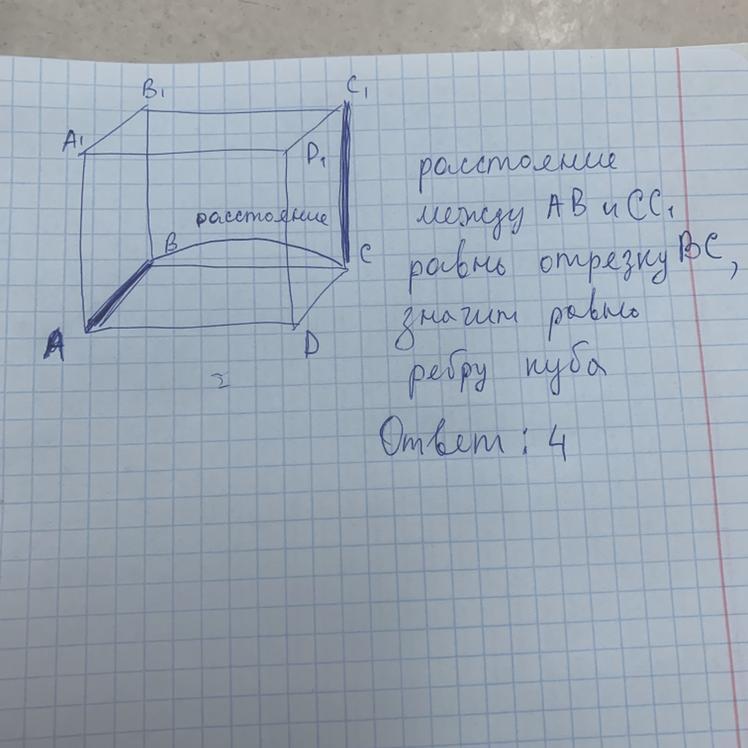 B₁
C₁
A₁
D₁
расстояние
B
C
A
D
расстояние
между AB и CC₁
равнь отрезку BC,
значит равно
ребру куба
Ответ: 4